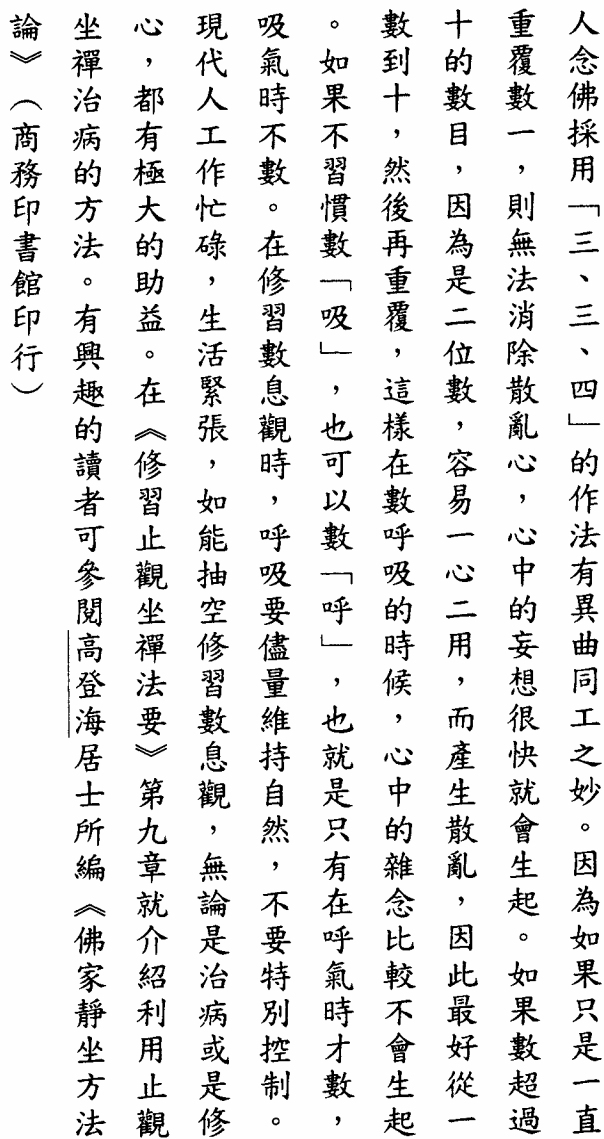 人念佛採用「三、三、四」的作法有異曲同工之妙。因為如果只是一直
重覆數一，則無法消除散亂心，心中的妄想很快就會生起。如果數超過
十的數目，因為是二位數，容易一心二用，而產生散亂，因此最好從一
數到十，然後再重覆，這樣在數呼吸的時候，心中的雜念比較不會生起
。如果不習慣數「吸」，也可以數「呼」，也就是只有在呼氣時才數，
吸氣時不數。在修習數息觀時，呼吸要儘量維持自然，不要特別控制。
現代人工作忙碌，生活緊張，如能抽空修習數息觀，無論是治病或是修
心，都有極大的助益。在《修習止觀坐禪法要》第九章就介紹利用止觀
坐禪治病的方法。有興趣的讀者可參閱高登海居士所編《佛家靜坐方法
論》（商務印書館印行）